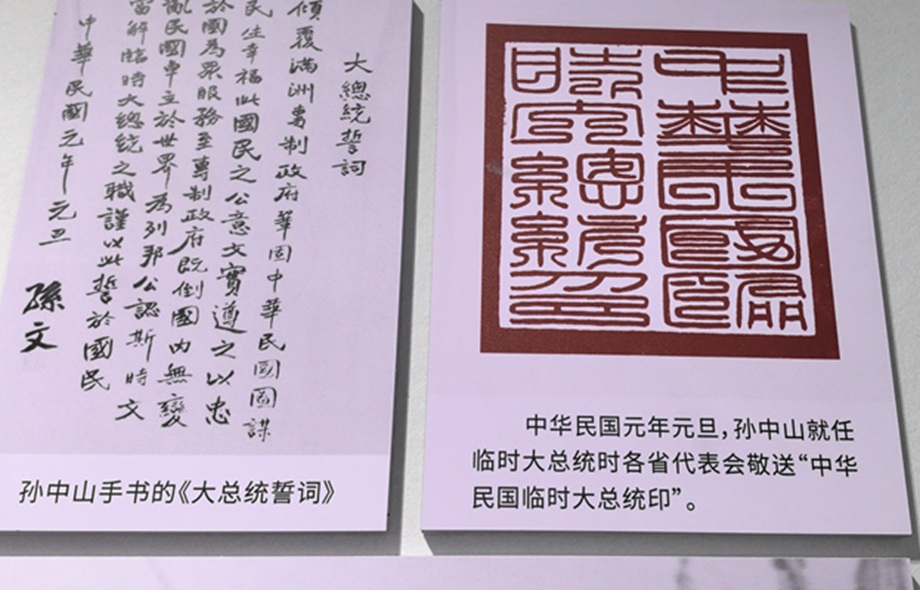 大總統誓詞
傾覆滿洲專制政府鞏固中華民國圖謀
民生幸福此國民之公意文實遵之以忠
於國為眾服務至專制政府既倒國內無變
亂民國卓立於世界為列邦公認斯時文
當解臨時大總統之職謹以此誓於國民
中華民國元年元旦
孫文
孙中山手书的《大总统誓词》
中華民國臨
時大總統印
中华民国元年元旦，孙中山就任
临时大总统时各省代表会敬送“中华
民国临时大总统印”。